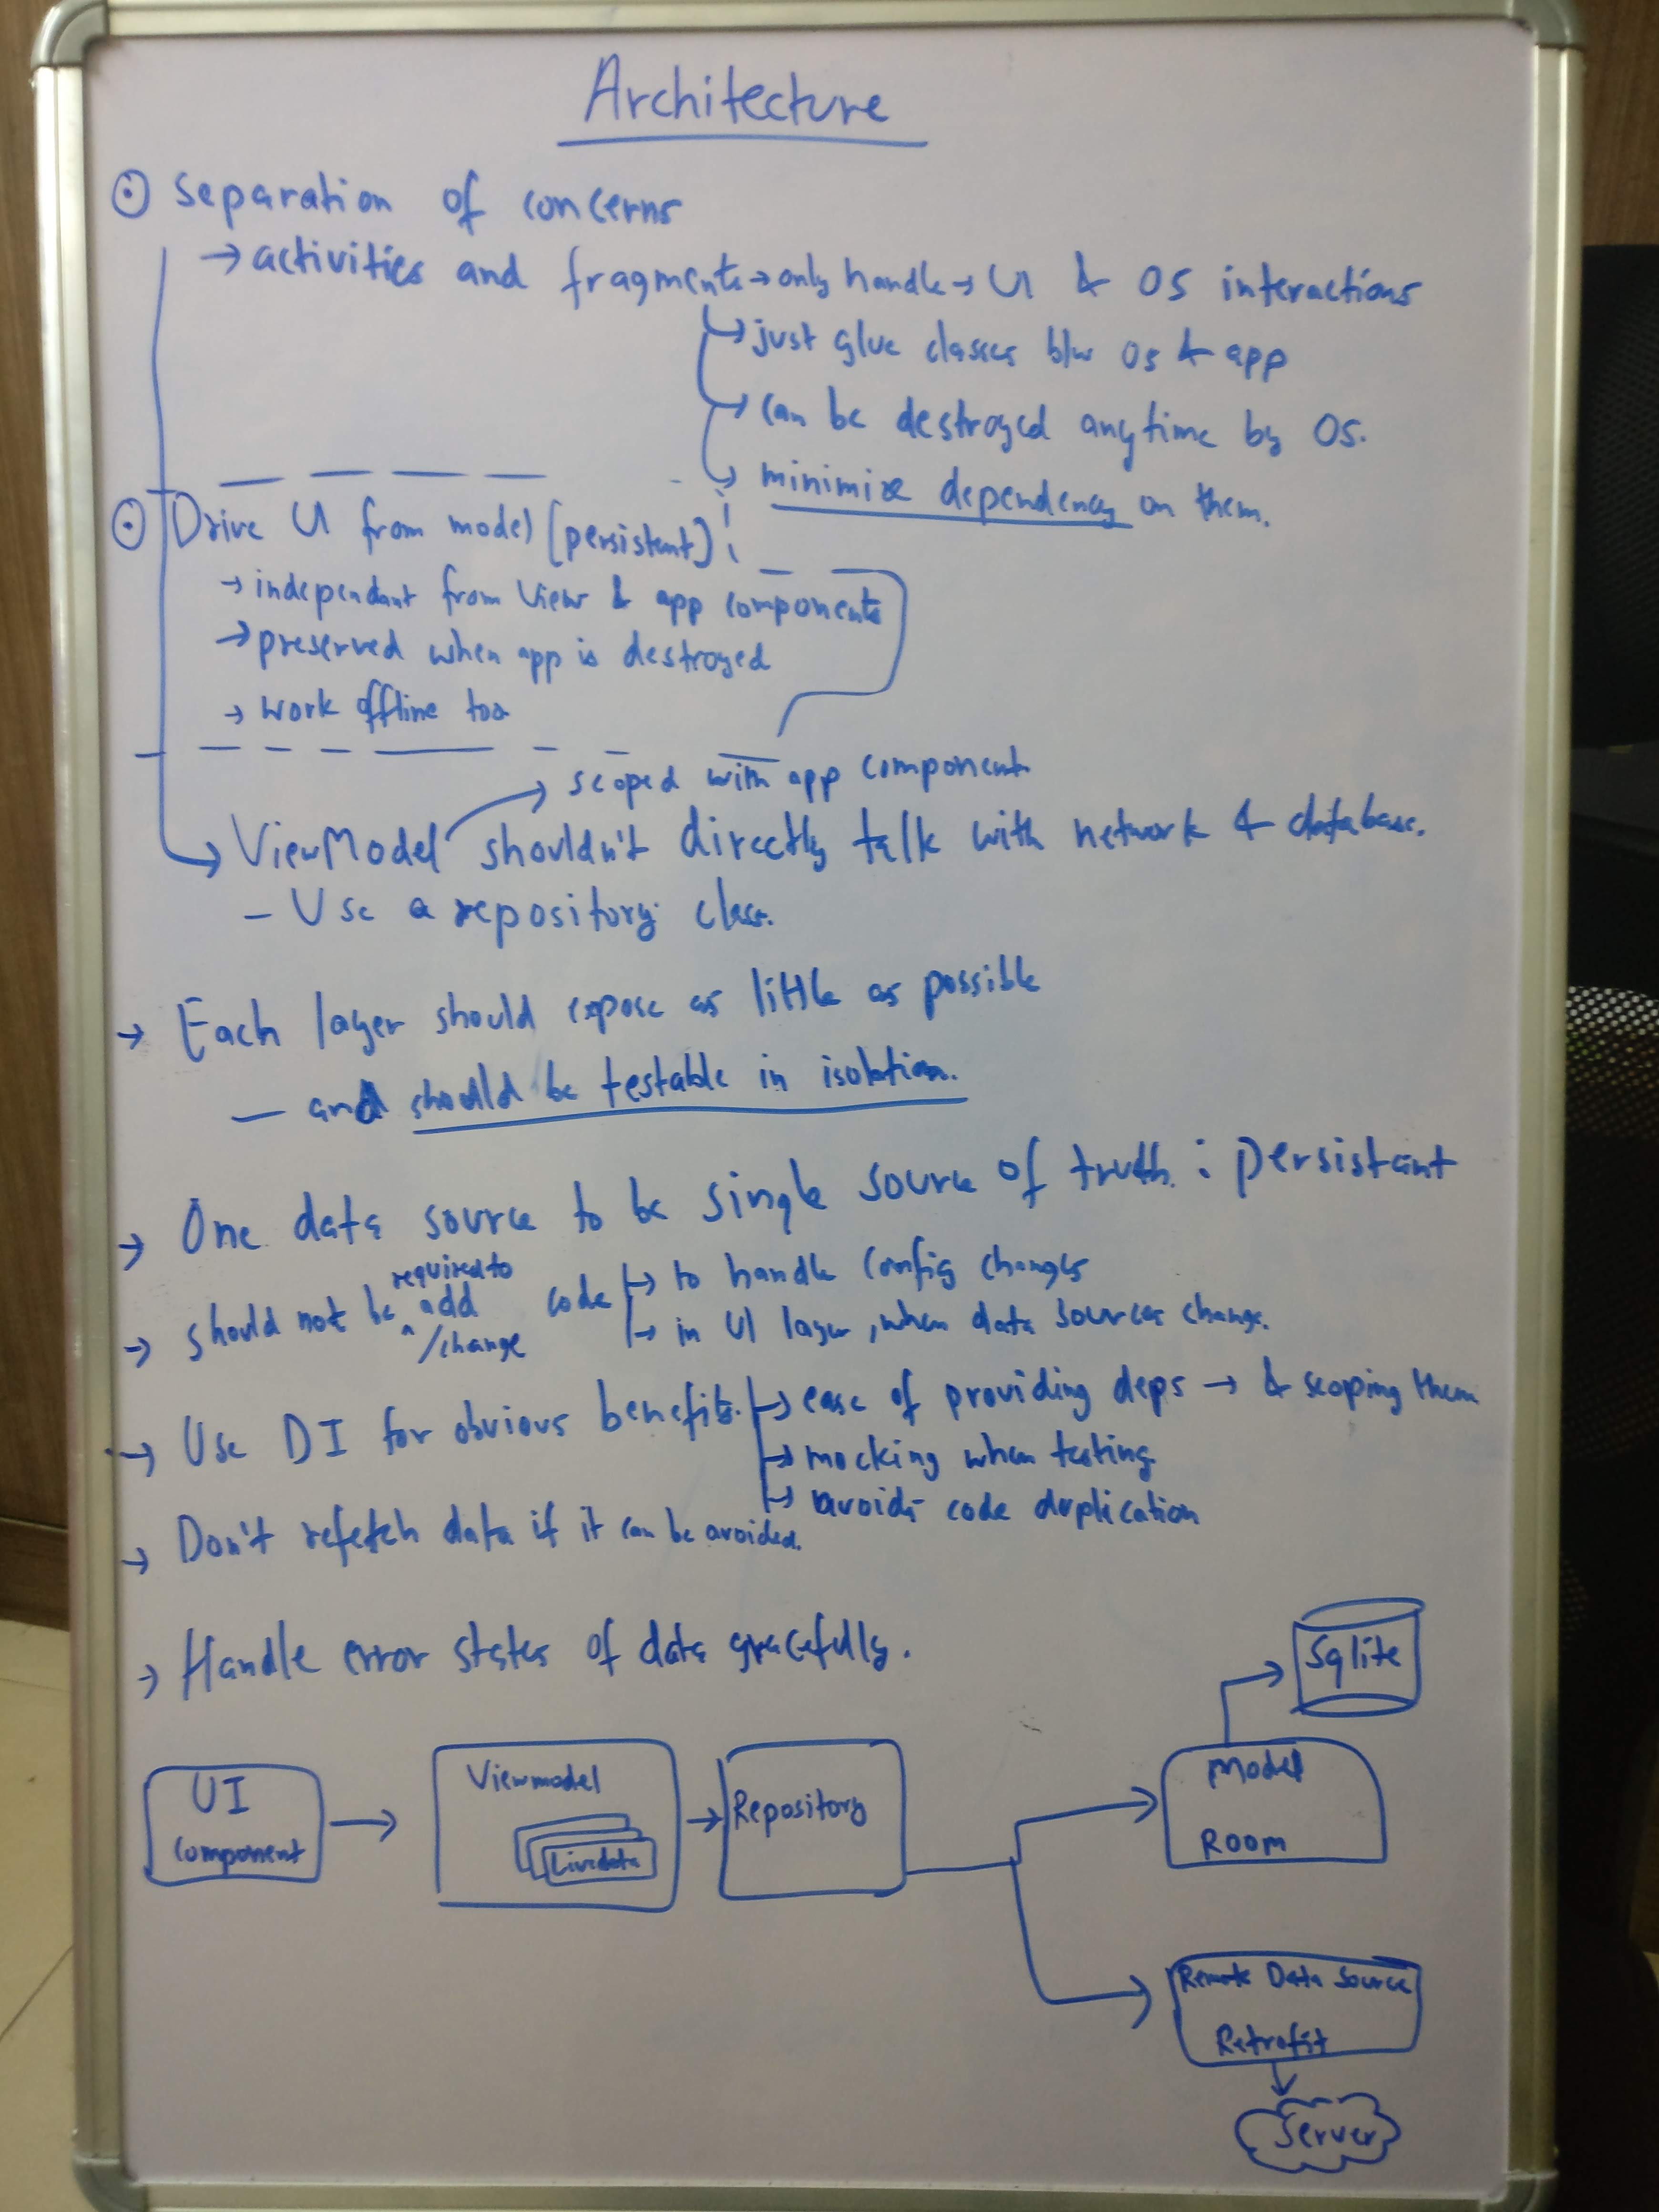 Architecture
⊙ Separation of concerns
→ activities and fragments → only handle → UI & OS interactions
↳ just glue classes b/w OS & app
↳ can be destroyed anytime by OS.
↳ minimize dependency on them.
⊙ Drive UI from model [persistent]
→ independant from view & app components
→ preserved when app is destroyed
→ work offline too
→ scoped with app component
→ ViewModel shouldn't directly talk with network & database.
- Use a repository class.
→ Each layer should expose as little as possible
— and should be testable in isolation.
→ One data source to be single source of truth : persistant
→ should not be required to add /change code
↳ to handle config changes
↳ in UI layer, when data sources change.
→ Use DI for obvious benefits.
↳ ease of providing deps → & scoping them
↳ mocking when testing
↳ avoids code duplication
→ Don't refetch data if it can be avoided.
→ Handle error states of data gracefully.
Sqlite
UI
Component
Viewmodel
Livedata
Repository
Model
ROOM
Remote Data Source
Retrofit
Server